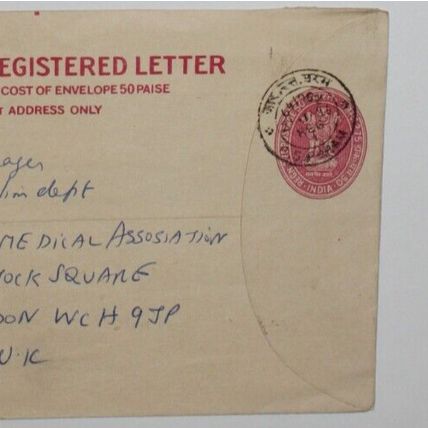 EGISTERED LETTER
COST OF ENVELOPE 50 PAISE
ADDRESS ONLY
ager
dept
MEDICAL ASSOSIATION
OCK SQUARE
DON WCH 9JP
U.K
INDIA